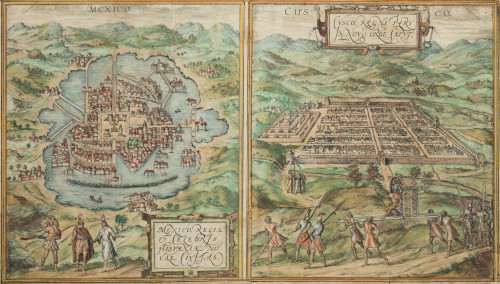 MEXICO.
MEXICO, REGIA
ET CELEBRIS
HISPANIÆ NO-
VAE CIVITAS.
CUS CO.
CVSCO, REGNI PERV
IN NOVO ORBE CAPVT.